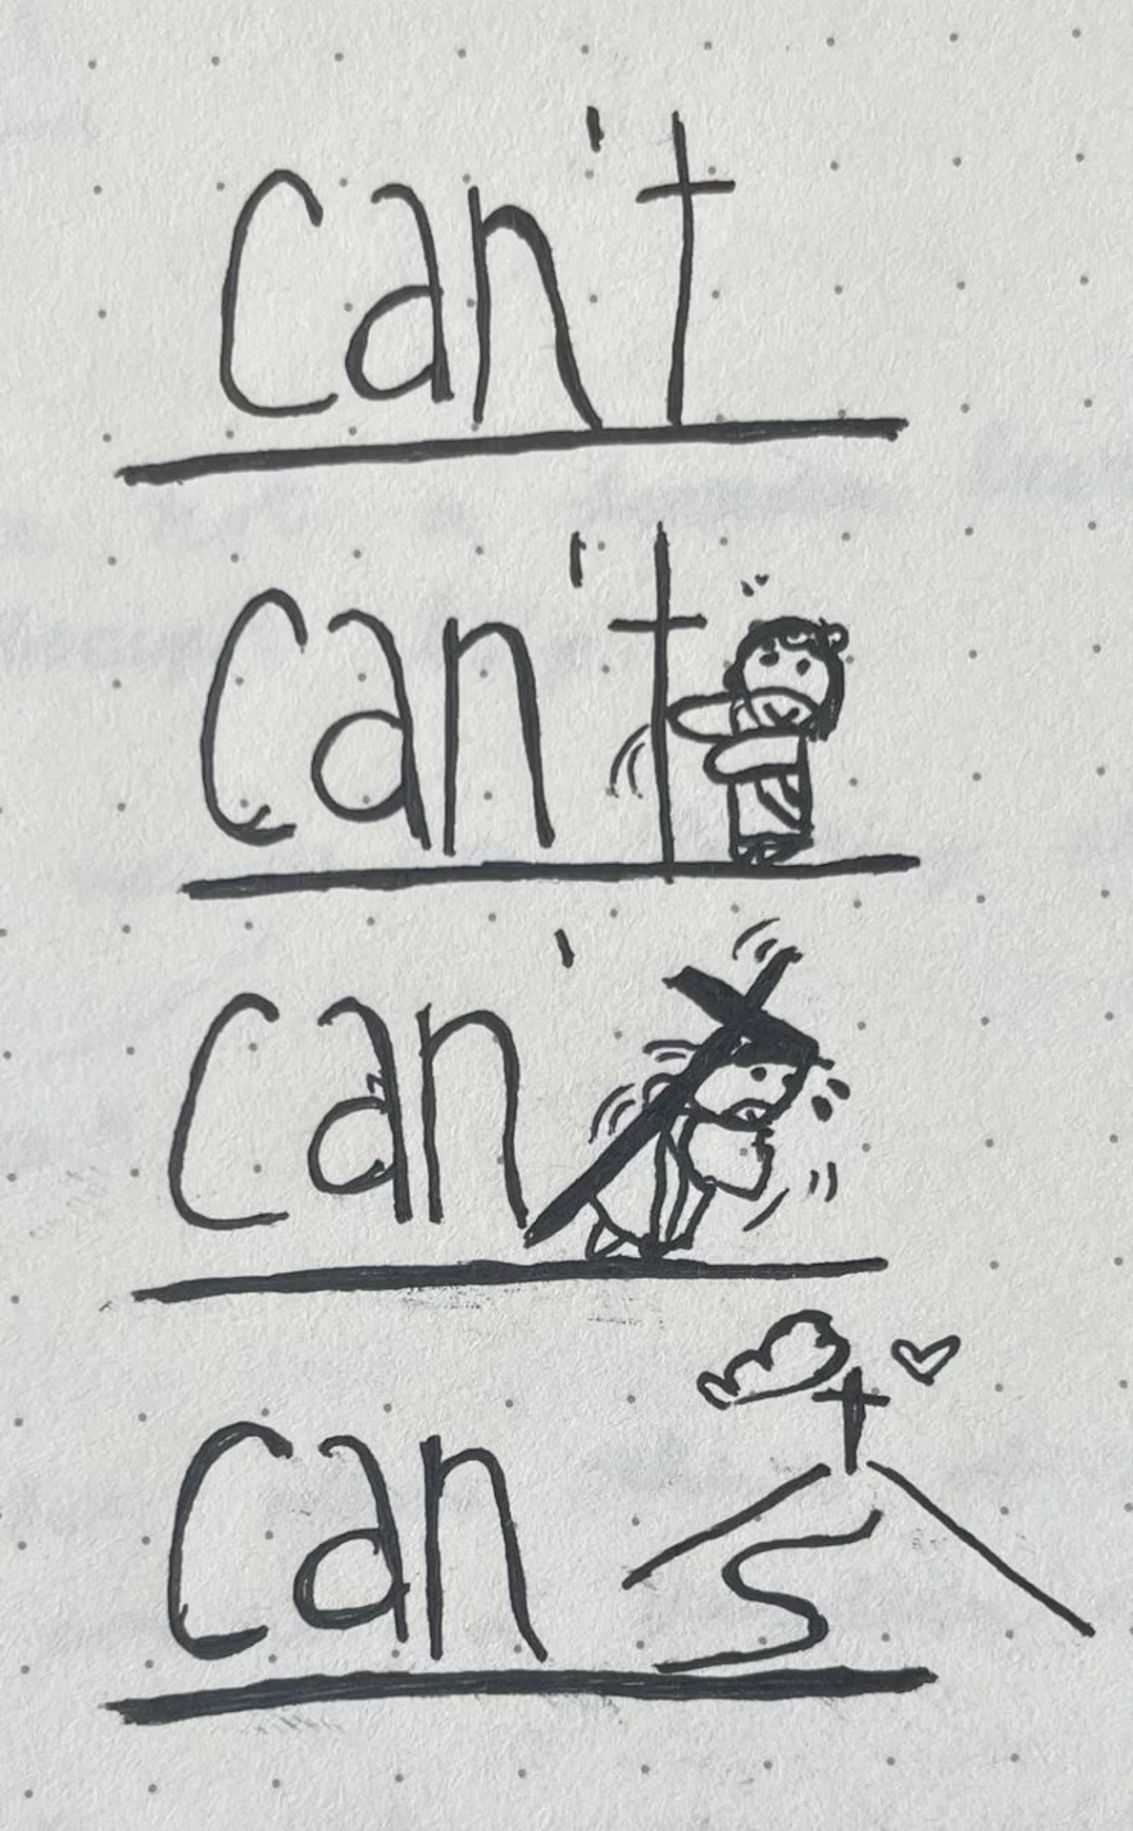 can't
can't
can't
can